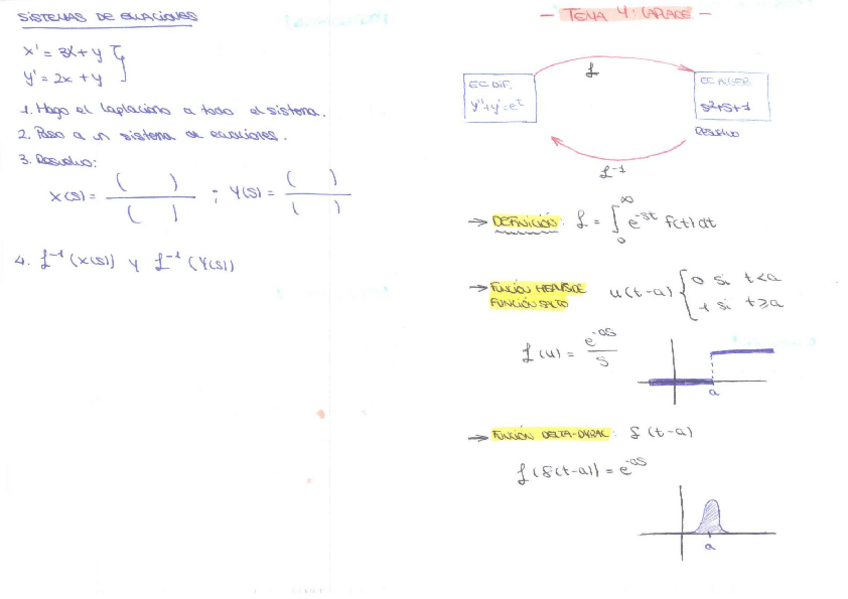 SISTEMAS DE ECUACIONES
x' = 3x + y
y' = 2x + y
1. Hago el laplaciano a todo el sistema.
2. Paso a un sistema de ecuaciones.
3. Resuelvo:
X(s) = ( ) / ( ) ; Y(s) = ( ) / ( )
4. ℒ⁻¹(X(s)) y ℒ⁻¹(Y(s))
- TEMA 4: LAPLACE -
ℒ
EC DIF.
y''+y'=eᵗ
EC ALGEB.
s²+s+1
RESUELVO
ℒ⁻¹
→ DEFINICIÓN: ℒ = ∫₀^∞ e^-st f(t) dt
→ FUNCIÓN HEAVISIDE
FUNCIÓN SALTO
u(t-a) { 0 si t<a
1 si t≥a
ℒ(u) = e^-as / s
a
→ FUNCIÓN DELTA-DIRAC: δ(t-a)
ℒ(δ(t-a)) = e^-as
a